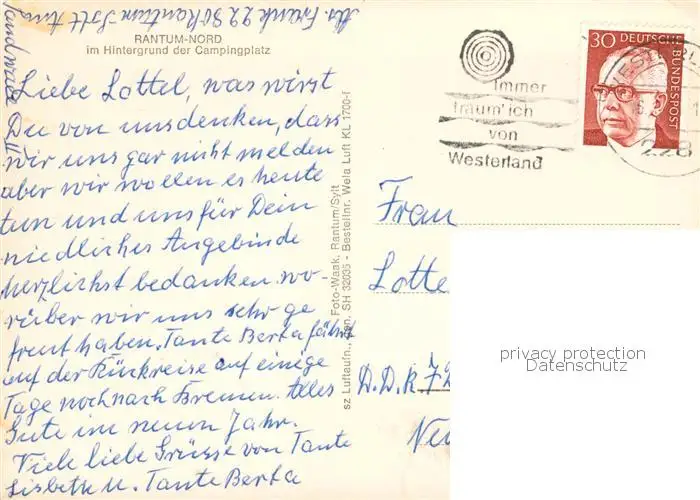 Abs. Frank 2280 Rantum Sylt
RANTUM-NORD
im Hintergrund der Campingplatz
Liebe Lottel, was wirst
Du von uns denken, dass
wir uns gar nicht melden
aber wir wollen es heute
tun und uns für Dein
niedliches Angebinde
herzlichst bedanken wo-
rüber wir uns sehr ge
freut haben. Tante Berta fährt
auf der Rückreise auf einige
Tage noch nach Bremen. Alles
Gute im neuen Jahr.
Viele liebe Grüsse von Tante
Lisbeth u. Tante Berta
sz Luftaufn., Foto-Waak, Rantum/Sylt
SH 32035 - Bestellnr. Wela Luft KL 1700-f
Immer
träum' ich
von
Westerland
30 DEUTSCHE
BUNDESPOST
228
Frau
Lotte
D.D.R 72
privacy protection
Datenschutz